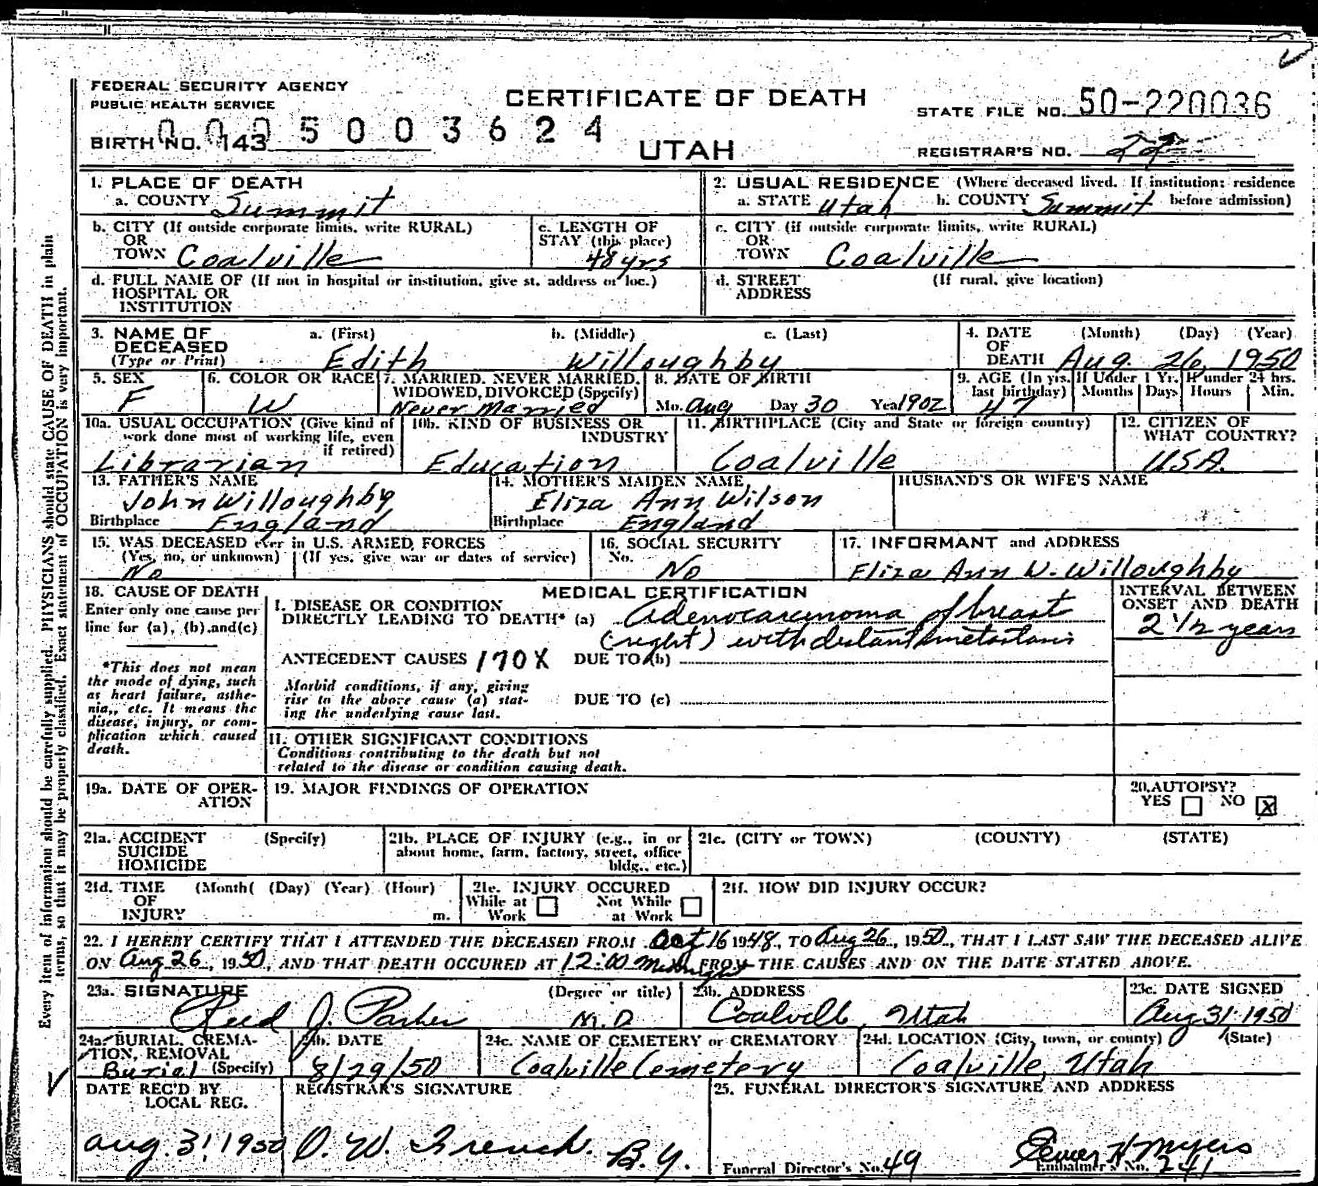 FEDERAL SECURITY AGENCY
PUBLIC HEALTH SERVICE
CERTIFICATE OF DEATH
STATE FILE NO. 50-220036
0005003624
BIRTH NO. 143
UTAH
REGISTRAR'S NO.
1. PLACE OF DEATH
a. COUNTY Summit
2. USUAL RESIDENCE (Where deceased lived. If institution: residence before admission)
a. STATE Utah b. COUNTY Summit
b. CITY (If outside corporate limits, write RURAL)
OR
TOWN Coalville
c. LENGTH OF
STAY (this place)
48 yrs
c. CITY (if outside corporate limits, write RURAL)
OR
TOWN Coalville
d. FULL NAME OF (If not in hospital or institution, give st. address or loc.)
HOSPITAL OR
INSTITUTION
d. STREET (If rural, give location)
ADDRESS
3. NAME OF a. (First) b. (Middle) c. (Last)
DECEASED
(Type or Print) Edith Willoughby
4. DATE (Month) (Day) (Year)
OF
DEATH Aug. 26, 1950
5. SEX
F
6. COLOR OR RACE
W
7. MARRIED, NEVER MARRIED,
WIDOWED, DIVORCED (Specify)
Never Married
8. DATE OF BIRTH
Mo. Aug Day 30 Year 1902
9. AGE (In yrs. last birthday)
47
If Under 1 Yr.
Months Days
If under 24 hrs.
Hours Min.
10a. USUAL OCCUPATION (Give kind of
work done most of working life, even
if retired)
Librarian
10b. KIND OF BUSINESS OR
INDUSTRY
Education
11. BIRTHPLACE (City and State or foreign country)
Coalville
12. CITIZEN OF
WHAT COUNTRY?
U.S.A.
13. FATHER'S NAME
John Willoughby
Birthplace England
14. MOTHER'S MAIDEN NAME
Eliza Ann Wilson
Birthplace England
HUSBAND'S OR WIFE'S NAME
15. WAS DECEASED ever in U.S. ARMED FORCES
(Yes, no, or unknown) (If yes, give war or dates of service)
No
16. SOCIAL SECURITY
No. No
17. INFORMANT and ADDRESS
Eliza Ann W. Willoughby
18. CAUSE OF DEATH
Enter only one cause per
line for (a), (b) and (c)
*This does not mean
the mode of dying, such
as heart failure, asthe-
nia,, etc. It means the
disease, injury, or com-
plication which caused
death.
MEDICAL CERTIFICATION
I. DISEASE OR CONDITION
DIRECTLY LEADING TO DEATH* (a) Adenocarcinoma of breast
(right) with distant metastasis
INTERVAL BETWEEN
ONSET AND DEATH
2 1/2 years
ANTECEDENT CAUSES 170X DUE TO (b)
Morbid conditions, if any, giving
rise to the above cause (a) stat-
ing the underlying cause last.
DUE TO (c)
II. OTHER SIGNIFICANT CONDITIONS
Conditions contributing to the death but not
related to the disease or condition causing death.
19a. DATE OF OPER-
ATION
19. MAJOR FINDINGS OF OPERATION
20. AUTOPSY?
YES NO X
21a. ACCIDENT (Specify)
SUICIDE
HOMICIDE
21b. PLACE OF INJURY (e.g., in or
about home, farm, factory, street, office
bldg., etc.)
21c. (CITY or TOWN) (COUNTY) (STATE)
21d. TIME (Month( (Day) (Year) (Hour)
OF
INJURY m.
21e. INJURY OCCURED
While at Work Not While at Work
21f. HOW DID INJURY OCCUR?
22. I HEREBY CERTIFY THAT I ATTENDED THE DECEASED FROM Oct 16 1948, TO Aug 26, 1950, THAT I LAST SAW THE DECEASED ALIVE
ON Aug 26, 1950, AND THAT DEATH OCCURED AT 12:00 Midnight FROM THE CAUSES AND ON THE DATE STATED ABOVE.
23a. SIGNATURE (Degree or title)
Reed J. Parker M.D.
23b. ADDRESS
Coalville, Utah
23c. DATE SIGNED
Aug 31 1950
24a. BURIAL, CREMA-
TION, REMOVAL
Burial (Specify)
24b. DATE
8/29/50
24c. NAME OF CEMETERY or CREMATORY
Coalville Cemetery
24d. LOCATION (City, town, or county) (State)
Coalville, Utah
DATE REC'D BY
LOCAL REG.
Aug. 31 1950
REGISTRAR'S SIGNATURE
O. W. French. B.Y.
25. FUNERAL DIRECTOR'S SIGNATURE AND ADDRESS
Elmer H Myers
Funeral Director's No. 49 Embalmer's No. 241
Every item of information should be carefully supplied. PHYSICIANS should state CAUSE OF DEATH in plain
terms, so that it may be properly classified. Exact statement of OCCUPATION is very important.